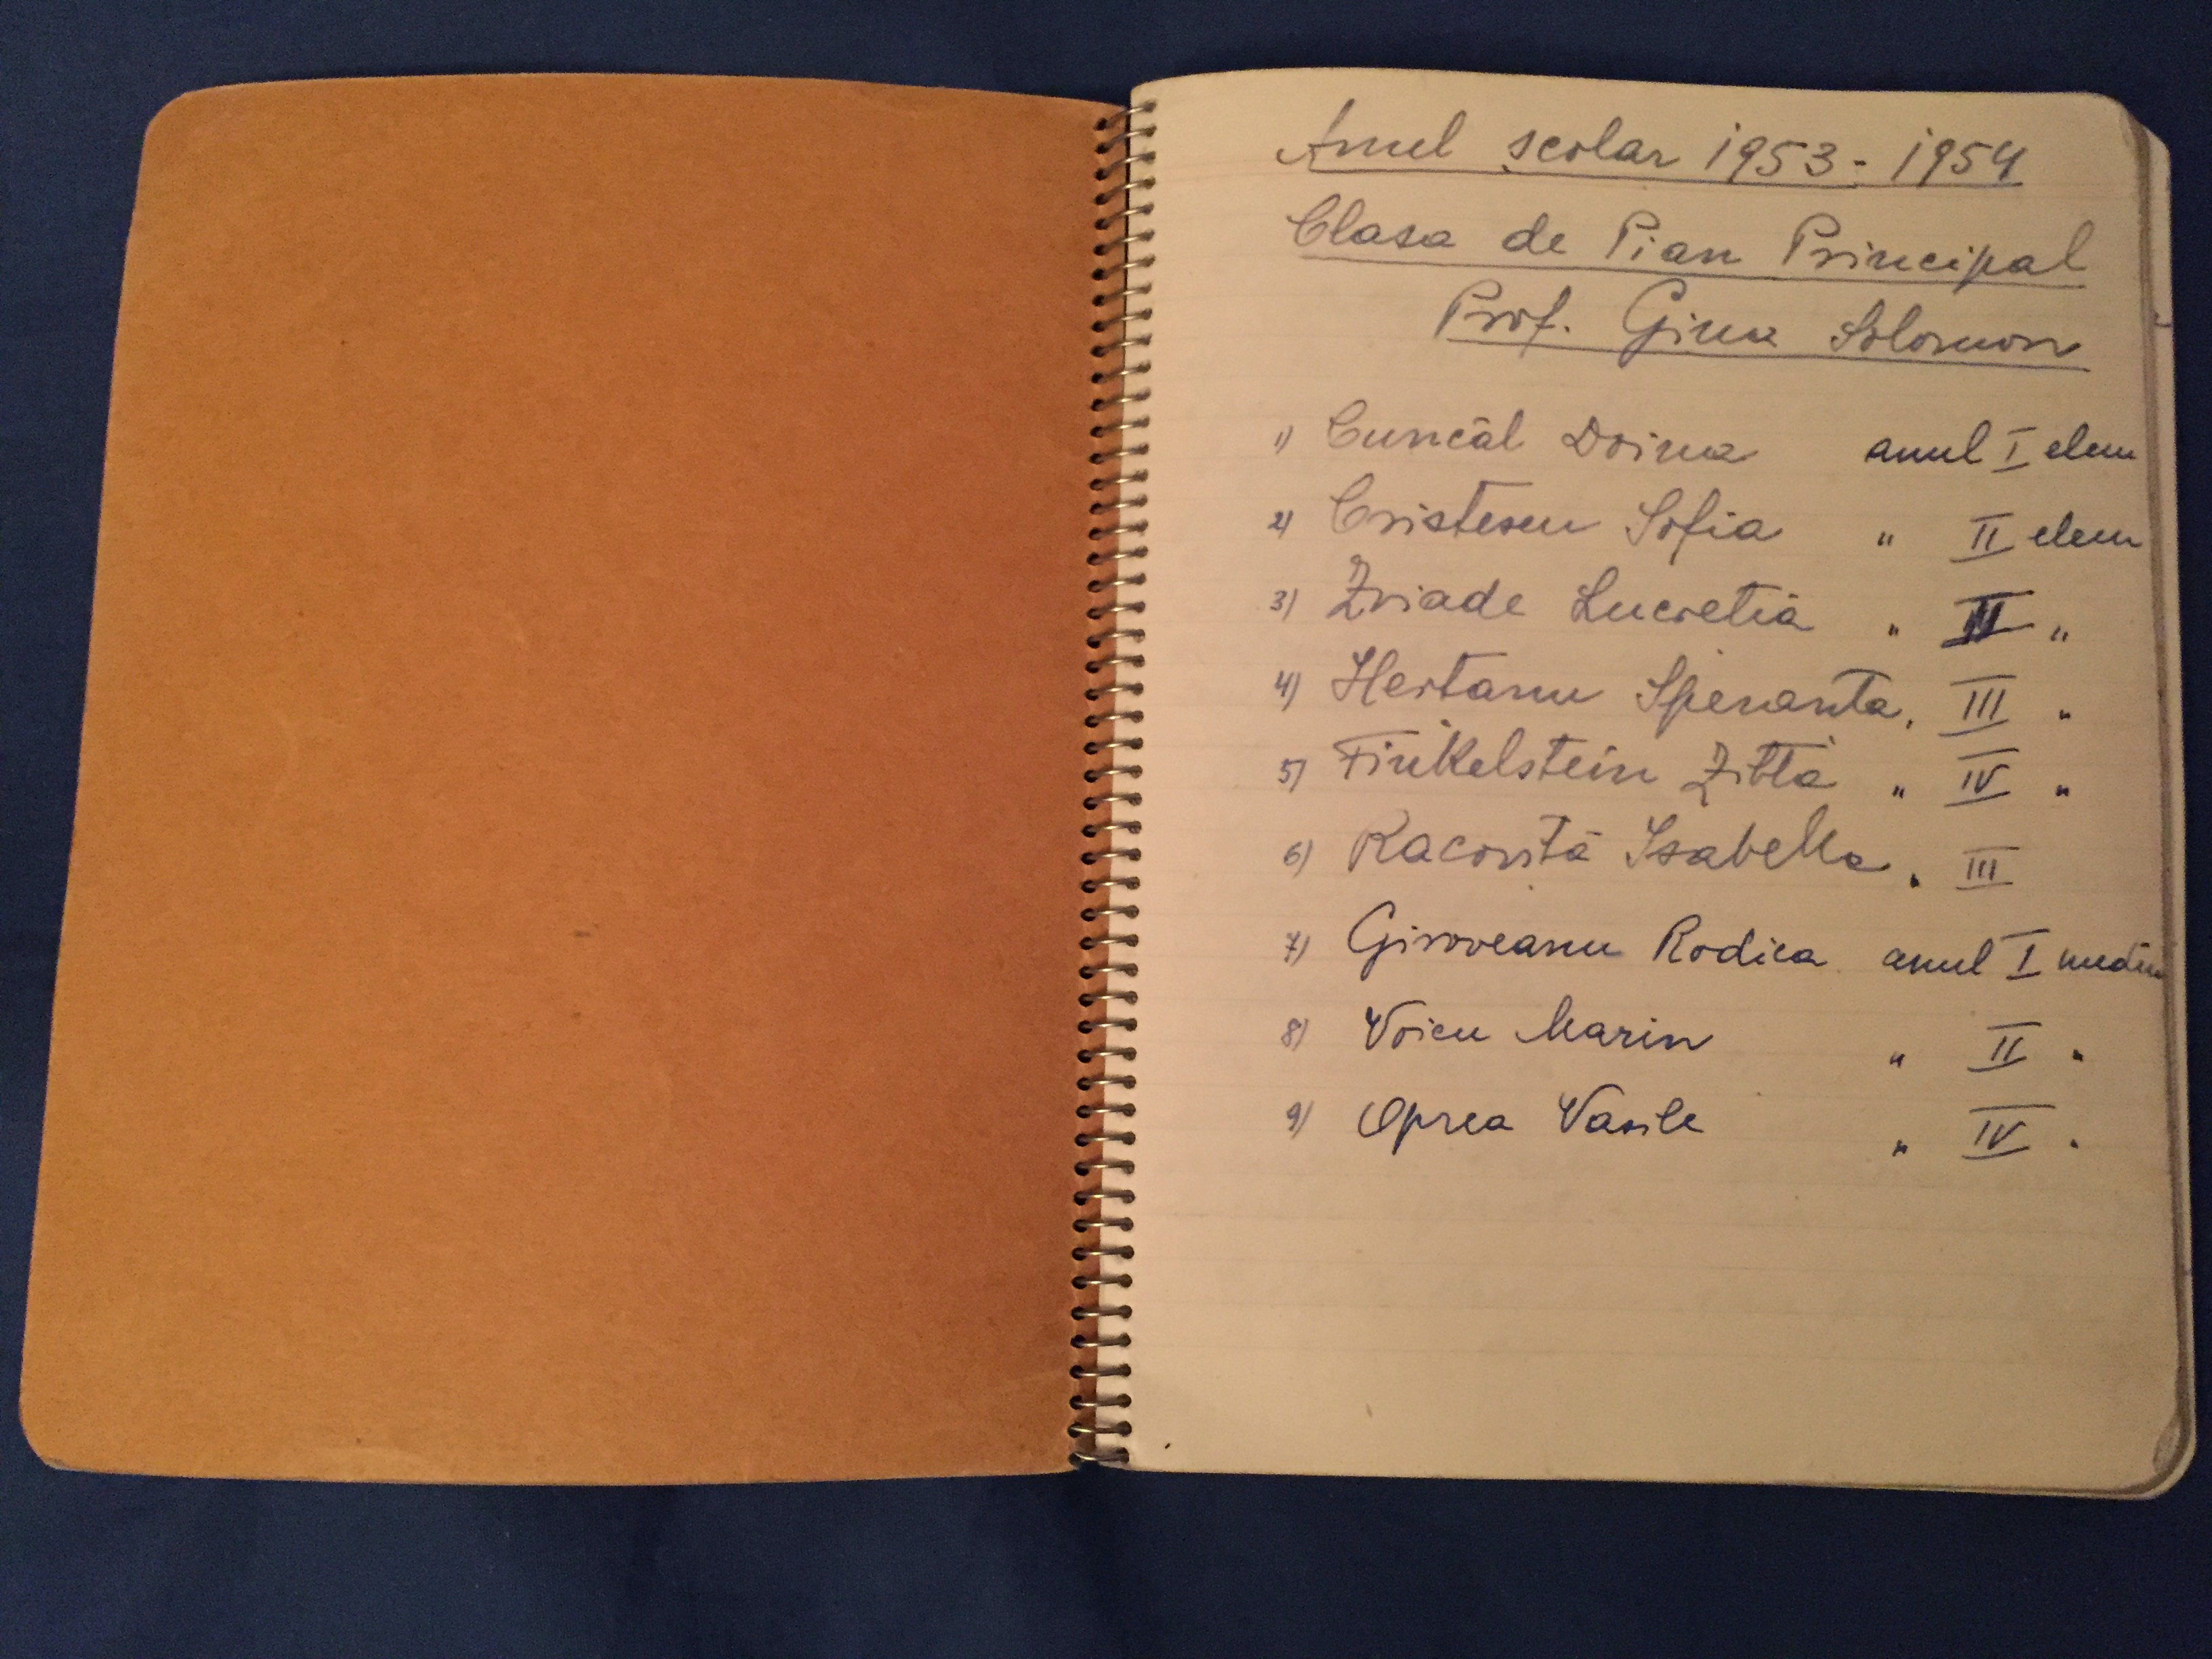 Anul scolar 1953-1954
Clasa de Pian Principal
Prof. Gina Solomon
1) Cuncăl Doina anul I elem
2) Cristescu Sofia " II elem
3) Zriade Lucretia " II "
4) Hertanu Speranta " III "
5) Finkelstein Zitta " IV "
6) Racovită Isabella " III
7) Giroveanu Rodica anul I mediu
8) Voicu Marin " II "
9) Oprea Vasile " IV "